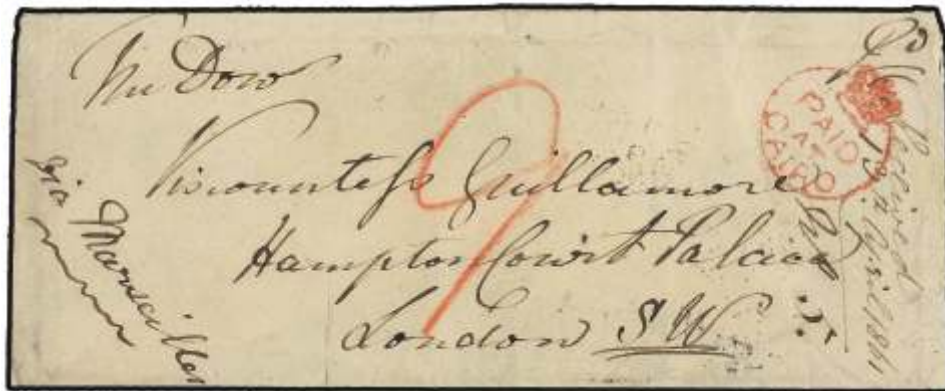 The Dow
Viscountess Guillamore
Hampton Court Palace
London S.W.
via Marseilles
9
PAID
AT
CAIRO
Received
19th April 1861